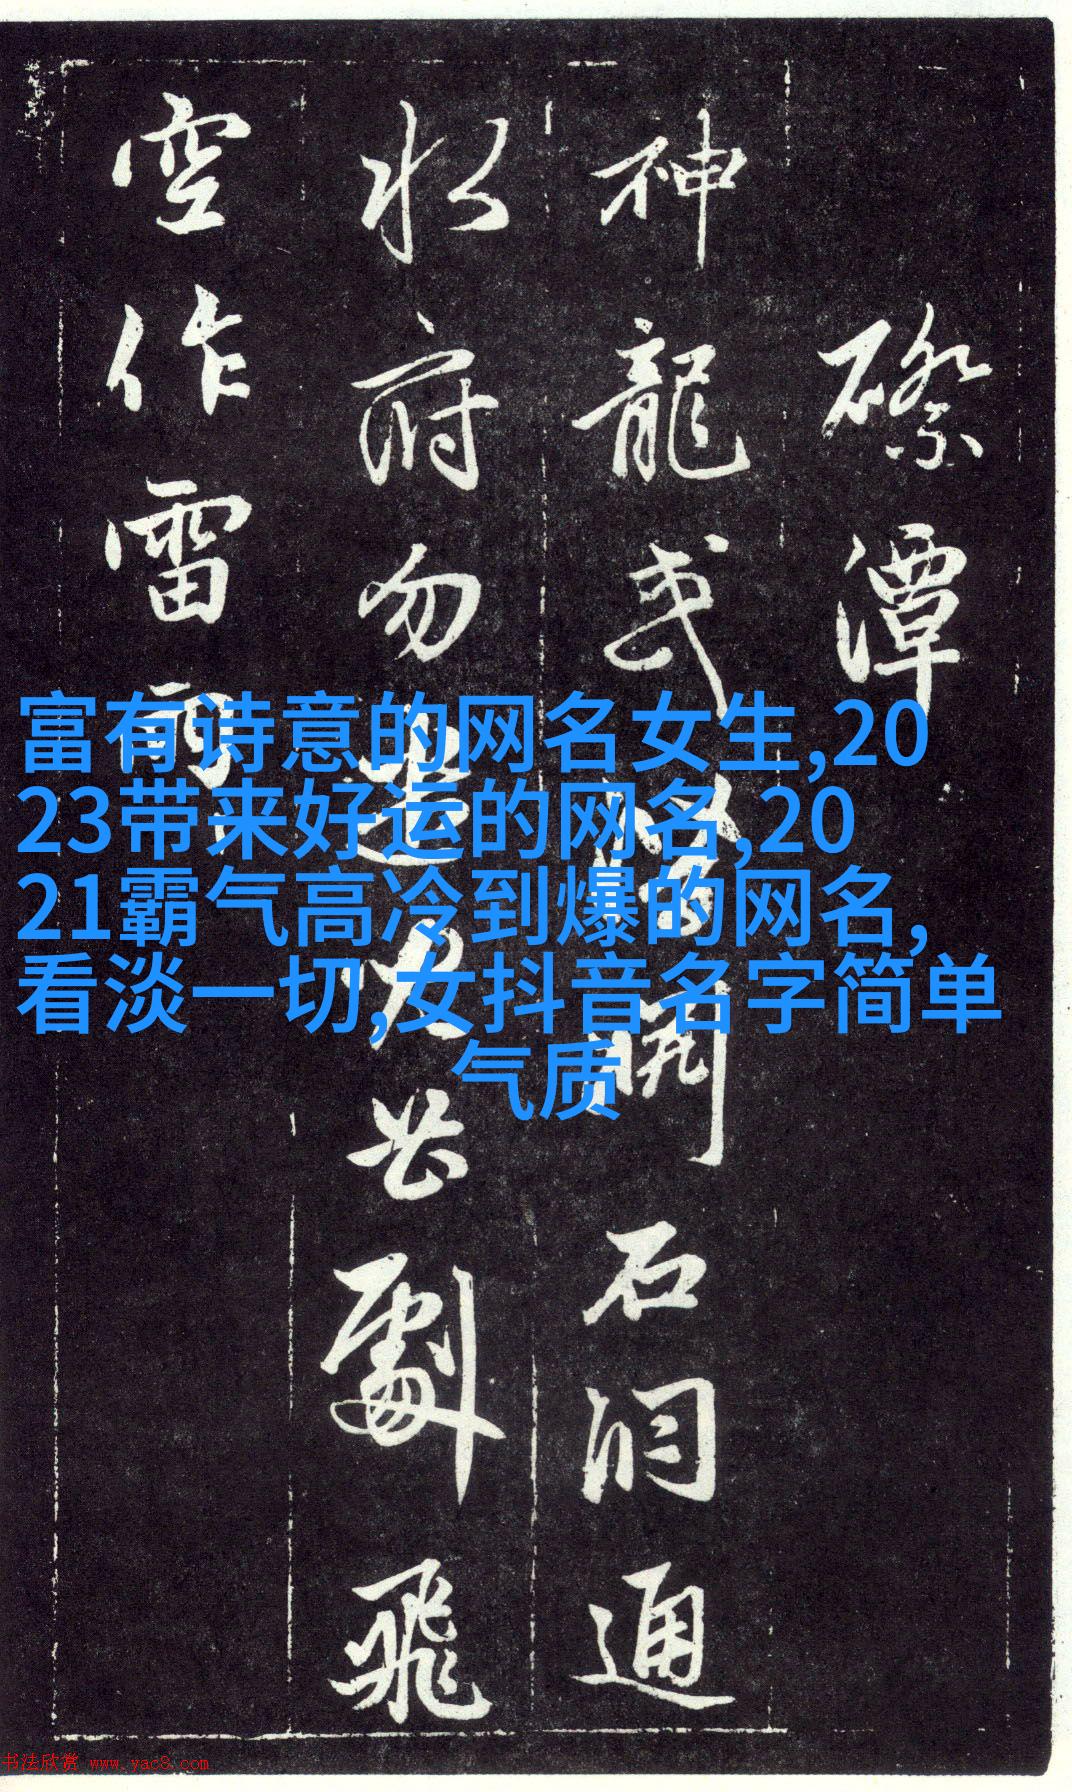 潭
神龍或
開石洞通
水府勿
劇飛
空作雷雨
富有诗意的网名女生,20
23带来好运的网名,20
21霸气高冷到爆的网名,
看淡一切,女抖音名字简单
气质
书法欣赏 www.yac8.com